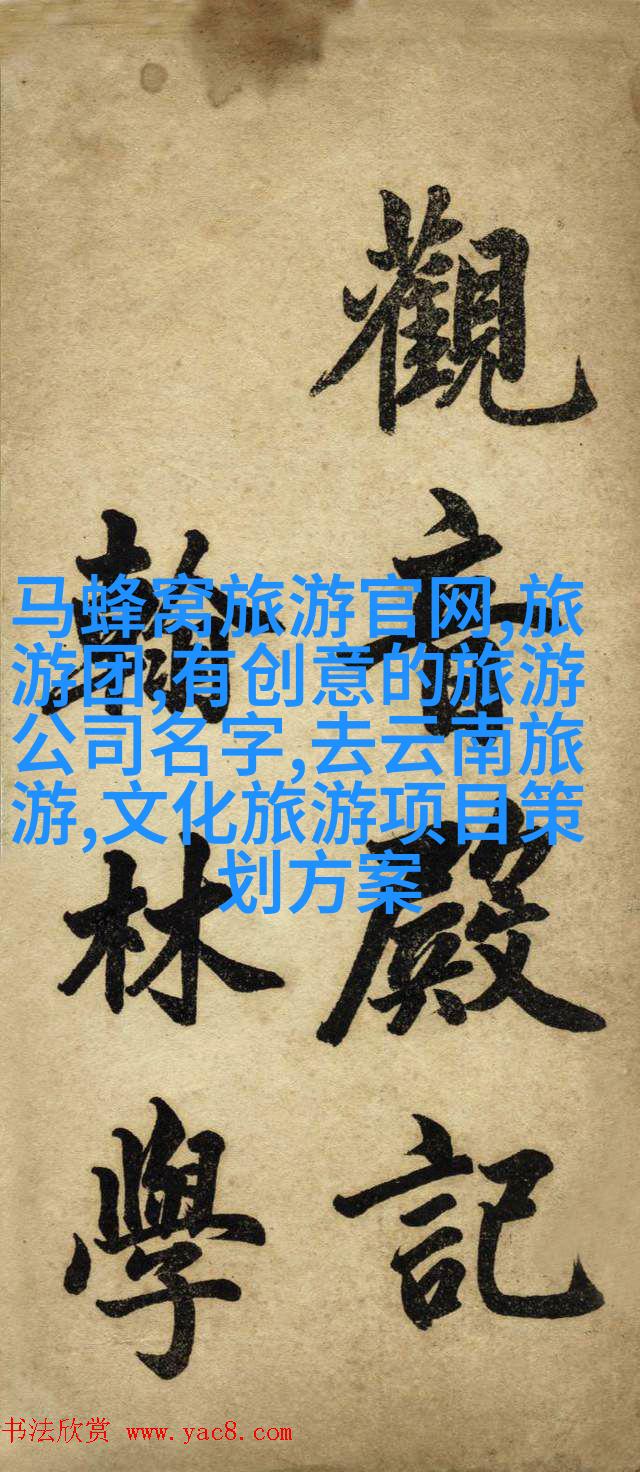 觀音殿記
翰林學
马蜂窝旅游官网,旅
游团,有创意的旅游
公司名字,去云南旅
游,文化旅游项目策
划方案
书法欣赏 www.yac8.com